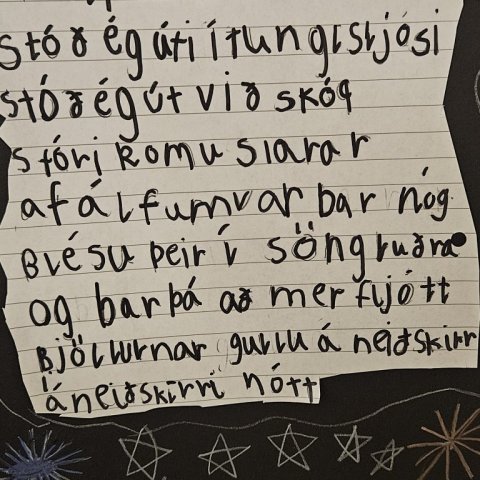 stóð égúti í tunglsljósi
stóð ég út við skóg
stóri komu slarar
af álfum var bar nóg
Blésu þeir í söngluðra
og bar þá að mer fljótt
Bjöllurnar gullu á neiðskirr
á neiðskirri nótt